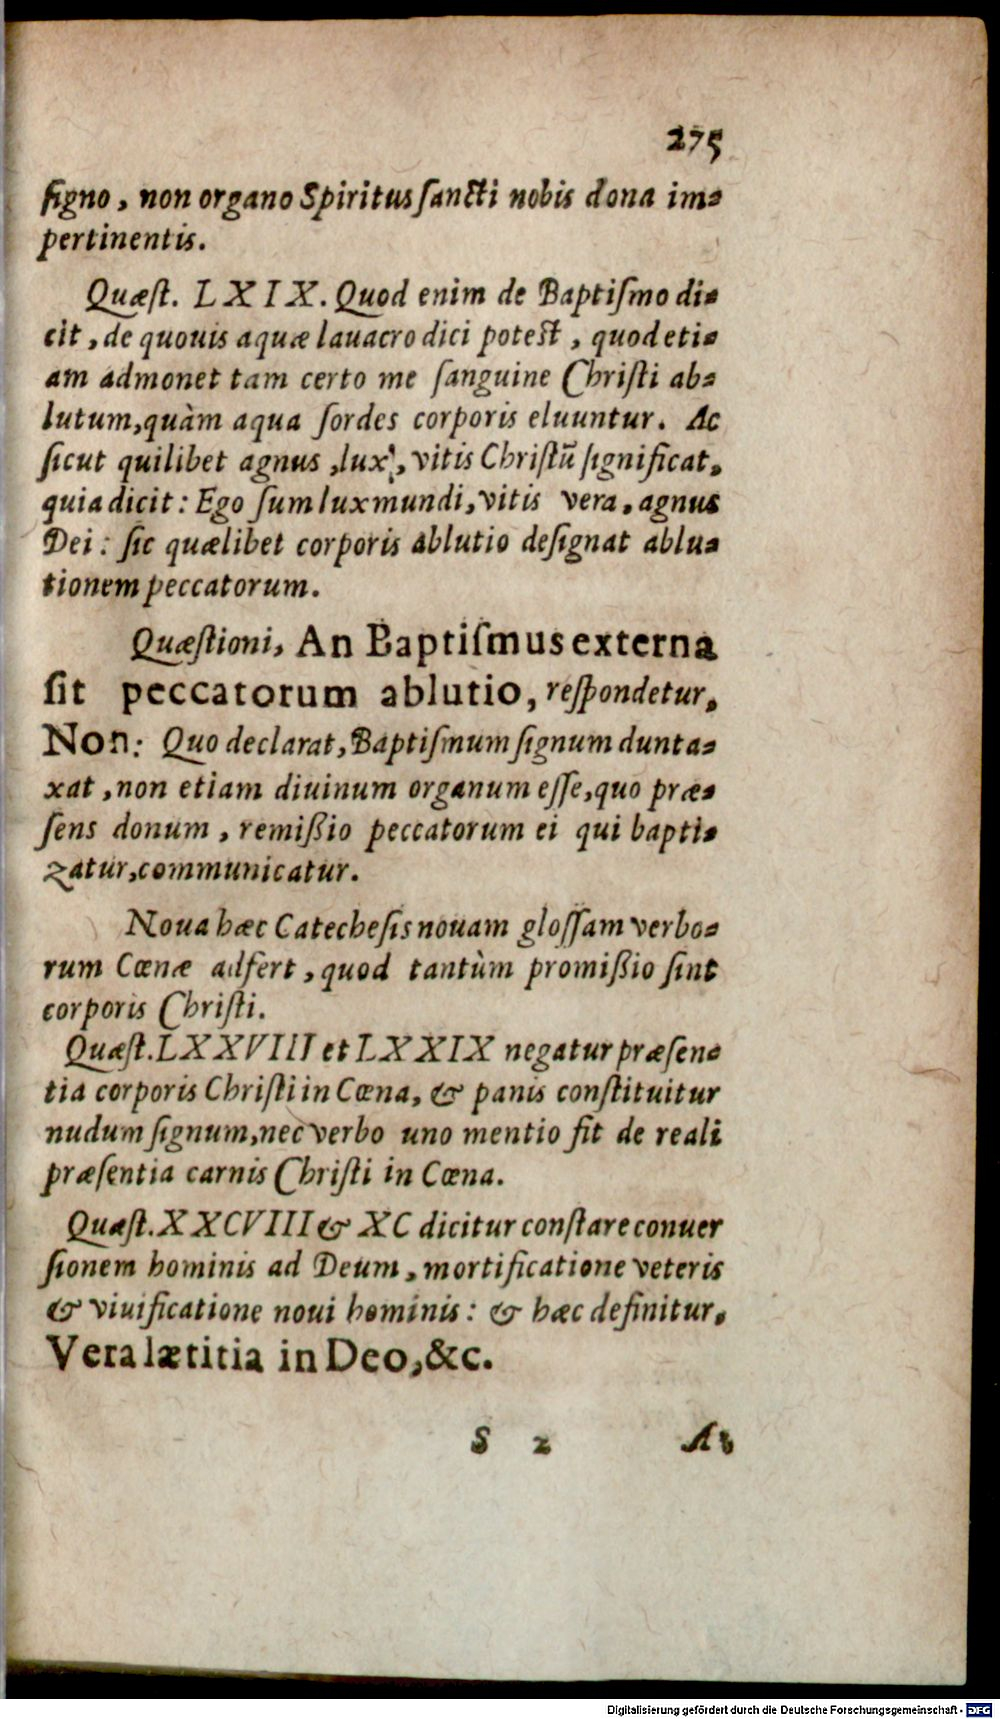 275
ſigno, non organo Spiritus ſancti nobis dona im-
pertinentis.
Quæſt. LXIX. Quod enim de Baptiſmo di-
cit, de quouis aquæ lauacro dici poteſt, quod eti-
am admonet tam certo me ſanguine Chriſti ab-
lutum, quàm aqua ſordes corporis eluuntur. Ac
ſicut quilibet agnus, lux, vitis Chriſtū ſignificat,
quia dicit: Ego ſum lux mundi, vitis vera, agnus
Dei: ſic quælibet corporis ablutio deſignat ablu-
tionem peccatorum.
Quæſtioni, An Baptiſmus externa
ſit peccatorum ablutio, reſpondetur,
Non: Quo declarat, Baptiſmum ſignum dunta-
xat, non etiam diuinum organum eſſe, quo præ-
ſens donum, remißio peccatorum ei qui bapti-
zatur, communicatur.
Noua hæc Catecheſis nouam gloſſam verbo-
rum Cœnæ adfert, quod tantùm promißio ſint
corporis Chriſti.
Quæſt. LXXVIII et LXXIX negatur præſen-
tia corporis Chriſti in Cœna, & panis conſtituitur
nudum ſignum, nec verbo uno mentio fit de reali
præſentia carnis Chriſti in Cœna.
Quæſt. XXCVIII & XC dicitur conſtare conuer
ſionem hominis ad Deum, mortificatione veteris
& viuificatione noui hominis: & hæc definitur,
Vera lætitia in Deo, &c.
S 2 At
Digitalisierung gefördert durch die Deutsche Forschungsgemeinschaft - DFG